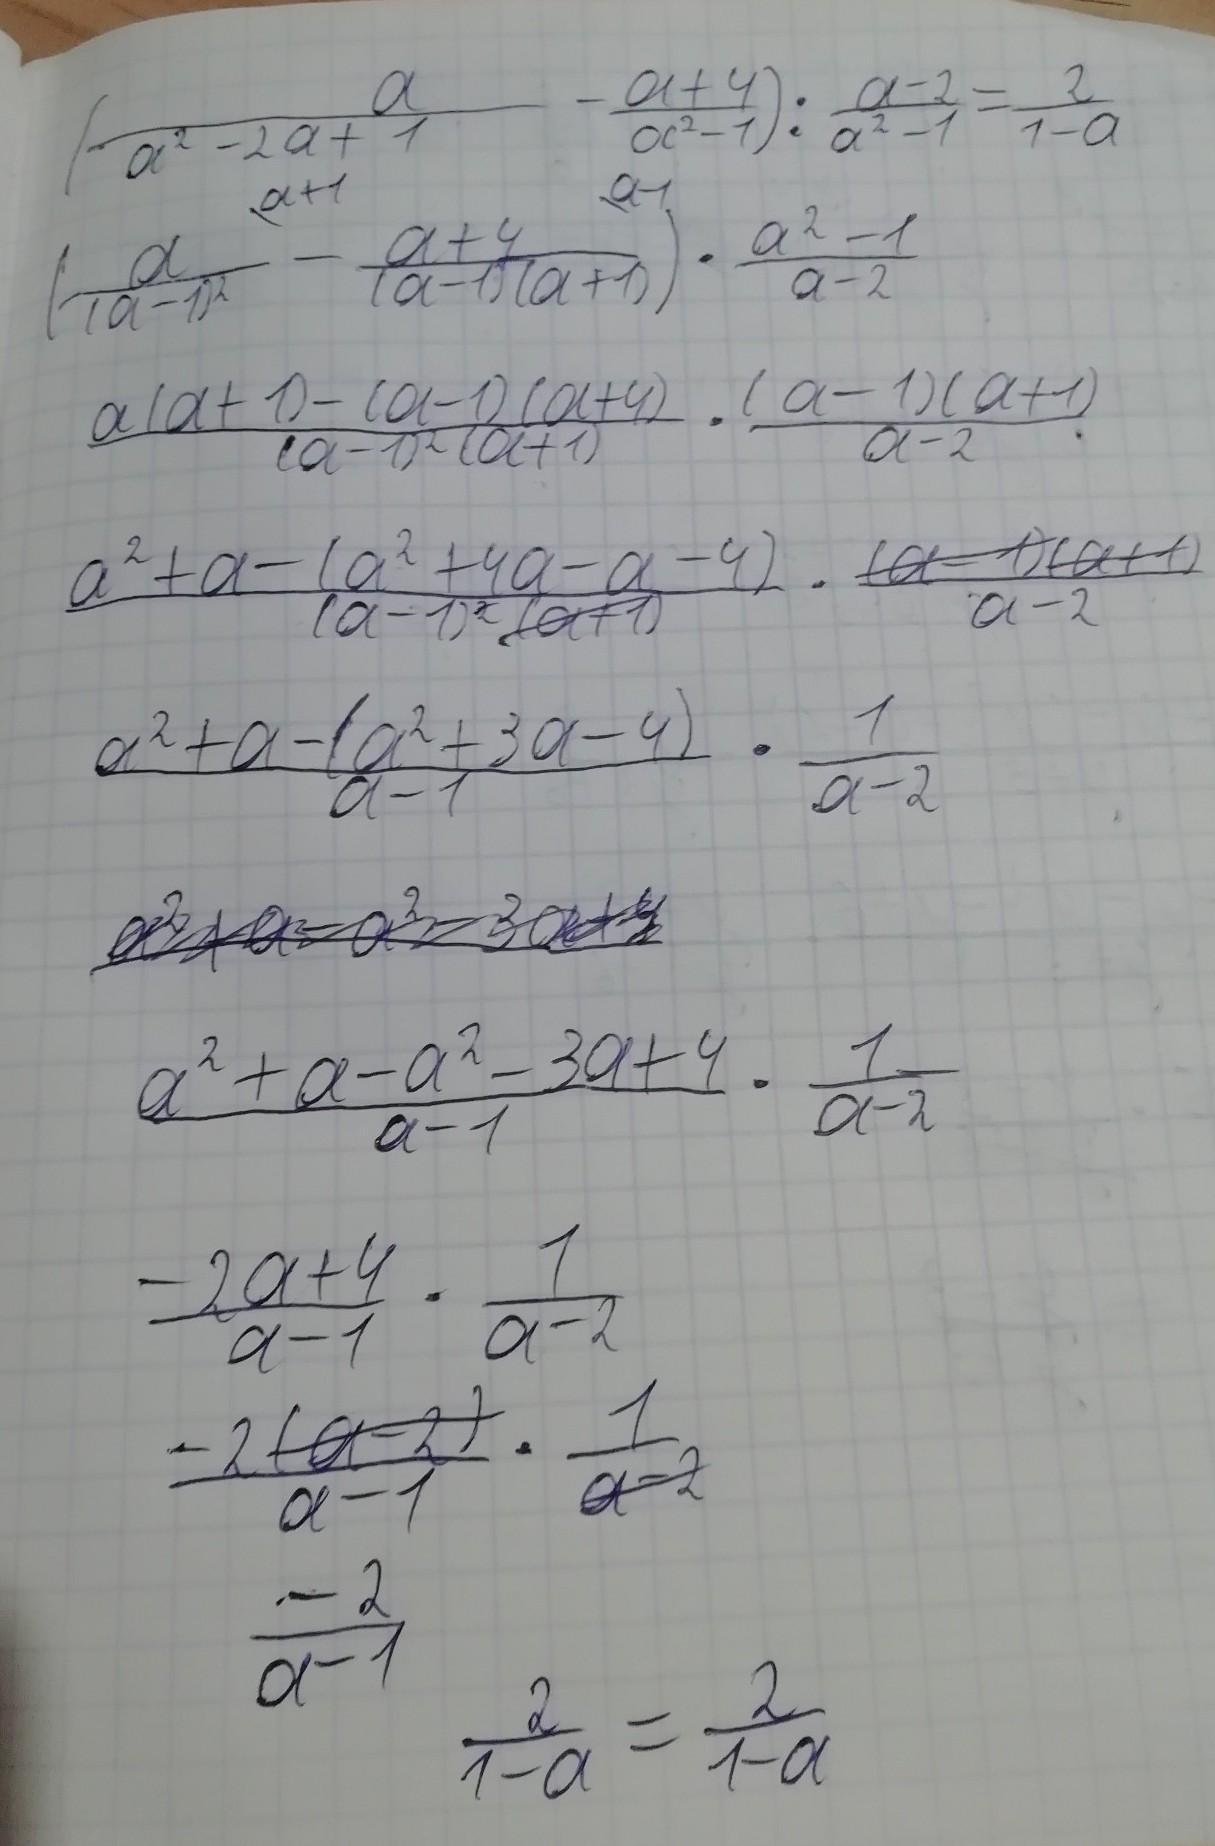 (a/(a² - 2a + 1) - (a+4)/(a²-1)) : (a-2)/(a²-1) = 2/(1-a)
a+1 a-1
(a/(a-1)² - (a+4)/((a-1)(a+1))) · (a²-1)/(a-2)
(a(a+1)-(a-1)(a+4))/((a-1)²(a+1)) · ((a-1)(a+1))/(a-2)
(a²+a-(a²+4a-a-4))/((a-1)²(a+1)) · ((a-1)(a+1))/(a-2)
(a²+a-(a²+3a-4))/(a-1) · 1/(a-2)
a²+a-a²-3a+4
(a²+a-a²-3a+4)/(a-1) · 1/(a-2)
(-2a+4)/(a-1) · 1/(a-2)
(-2(a-2))/(a-1) · 1/(a-2)
-2/(a-1)
2/(1-a) = 2/(1-a)